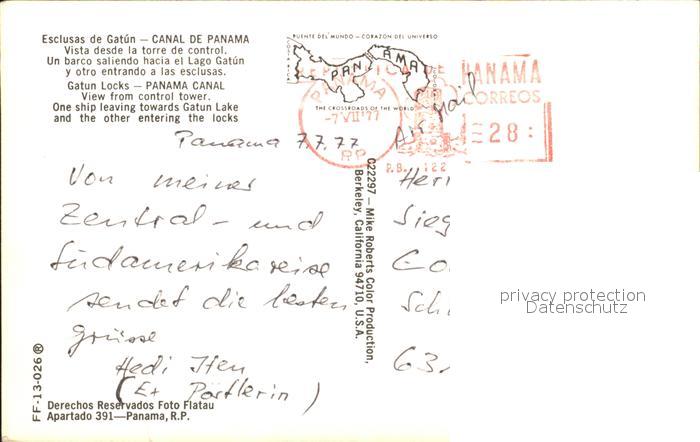 Esclusas de Gatún — CANAL DE PANAMA
Vista desde la torre de control.
Un barco saliendo hacia el Lago Gatún
y otro entrando a las esclusas.
Gatun Locks — PANAMA CANAL
View from control tower.
One ship leaving towards Gatun Lake
and the other entering the locks
PUENTE DEL MUNDO — CORAZÓN DEL UNIVERSO
PANAMA
THE CROSSROADS OF THE WORLD
REPUBLICA DE PANAMA
CORREOS
PANAMA
-7 VII '77
RP
28
P.B. 122
Air Mail
Panama 7.7.77
Von meiner
Zentral- und
Südamerikareise
sendet die besten
Grüsse
Hedi Iten
(Ex Pöstlerin)
Herr
Sieg
Go
Sch
63
C22297 — Mike Roberts Color Production,
Berkeley, California 94710, U.S.A.
privacy protection
Datenschutz
FF-13-026 ®
Derechos Reservados Foto Flatau
Apartado 391—Panama, R.P.